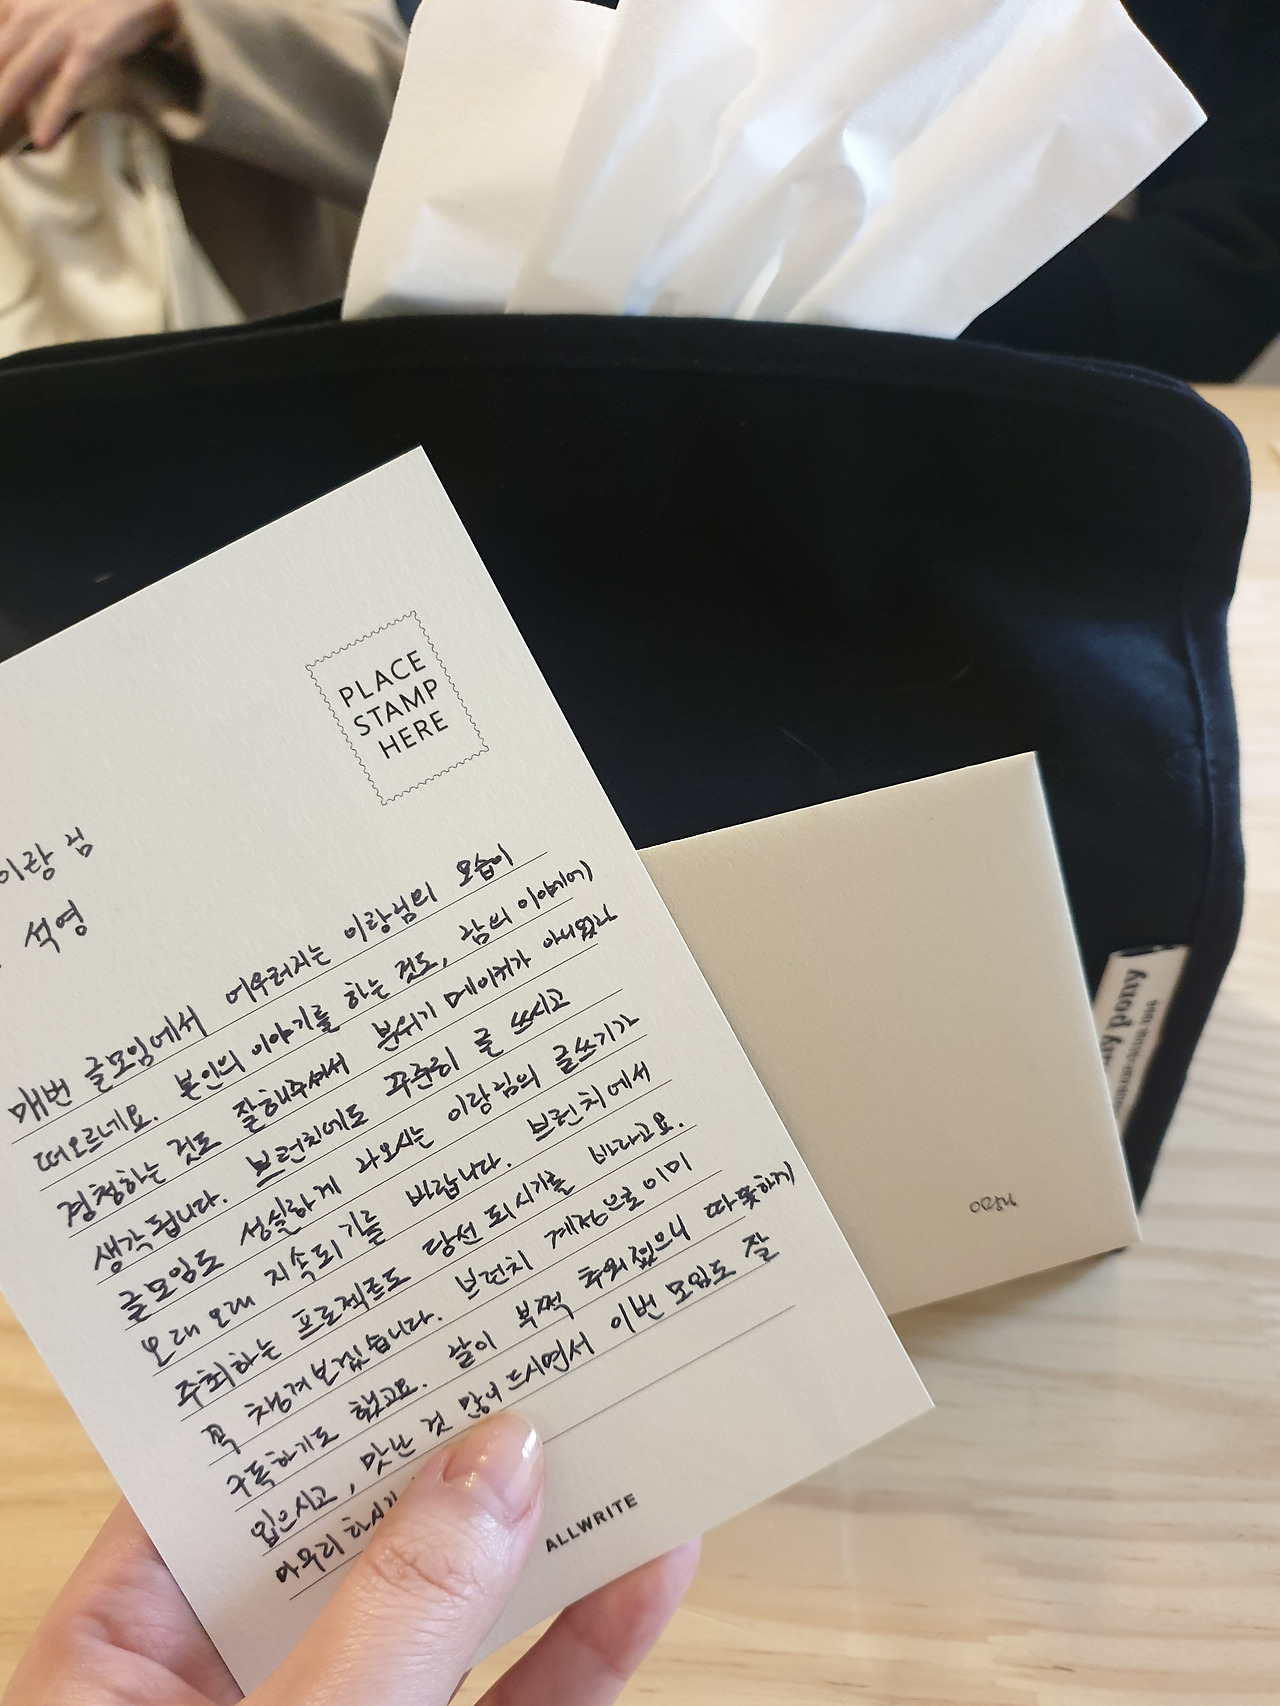 PLACE
STAMP
HERE
이랑 님
석영
매번 글모임에서 어우러지는 이랑님의 모습이
떠오르네요. 본인의 이야기를 하는 것도, 남의 이야기에
경청하는 것도 잘해주셔서 분위기 메이커가 아니었나
생각됩니다. 브런치에도 꾸준히 글 쓰시고
글모임도 성실하게 나오시는 이랑님의 글쓰기가
오래오래 지속되기를 바랍니다. 브런치에서
주최하는 프로젝트도 당선 되시기를 바라고요.
꼭 챙겨보겠습니다. 브런치 계정으로 이미
구독하기도 했고요. 날이 부쩍 추워졌으니 따뜻하게
입으시고, 맛난 것 많이 드시면서 이번 모임도 잘
마무리 하시기
ALLWRITE
이랑님
ny pony